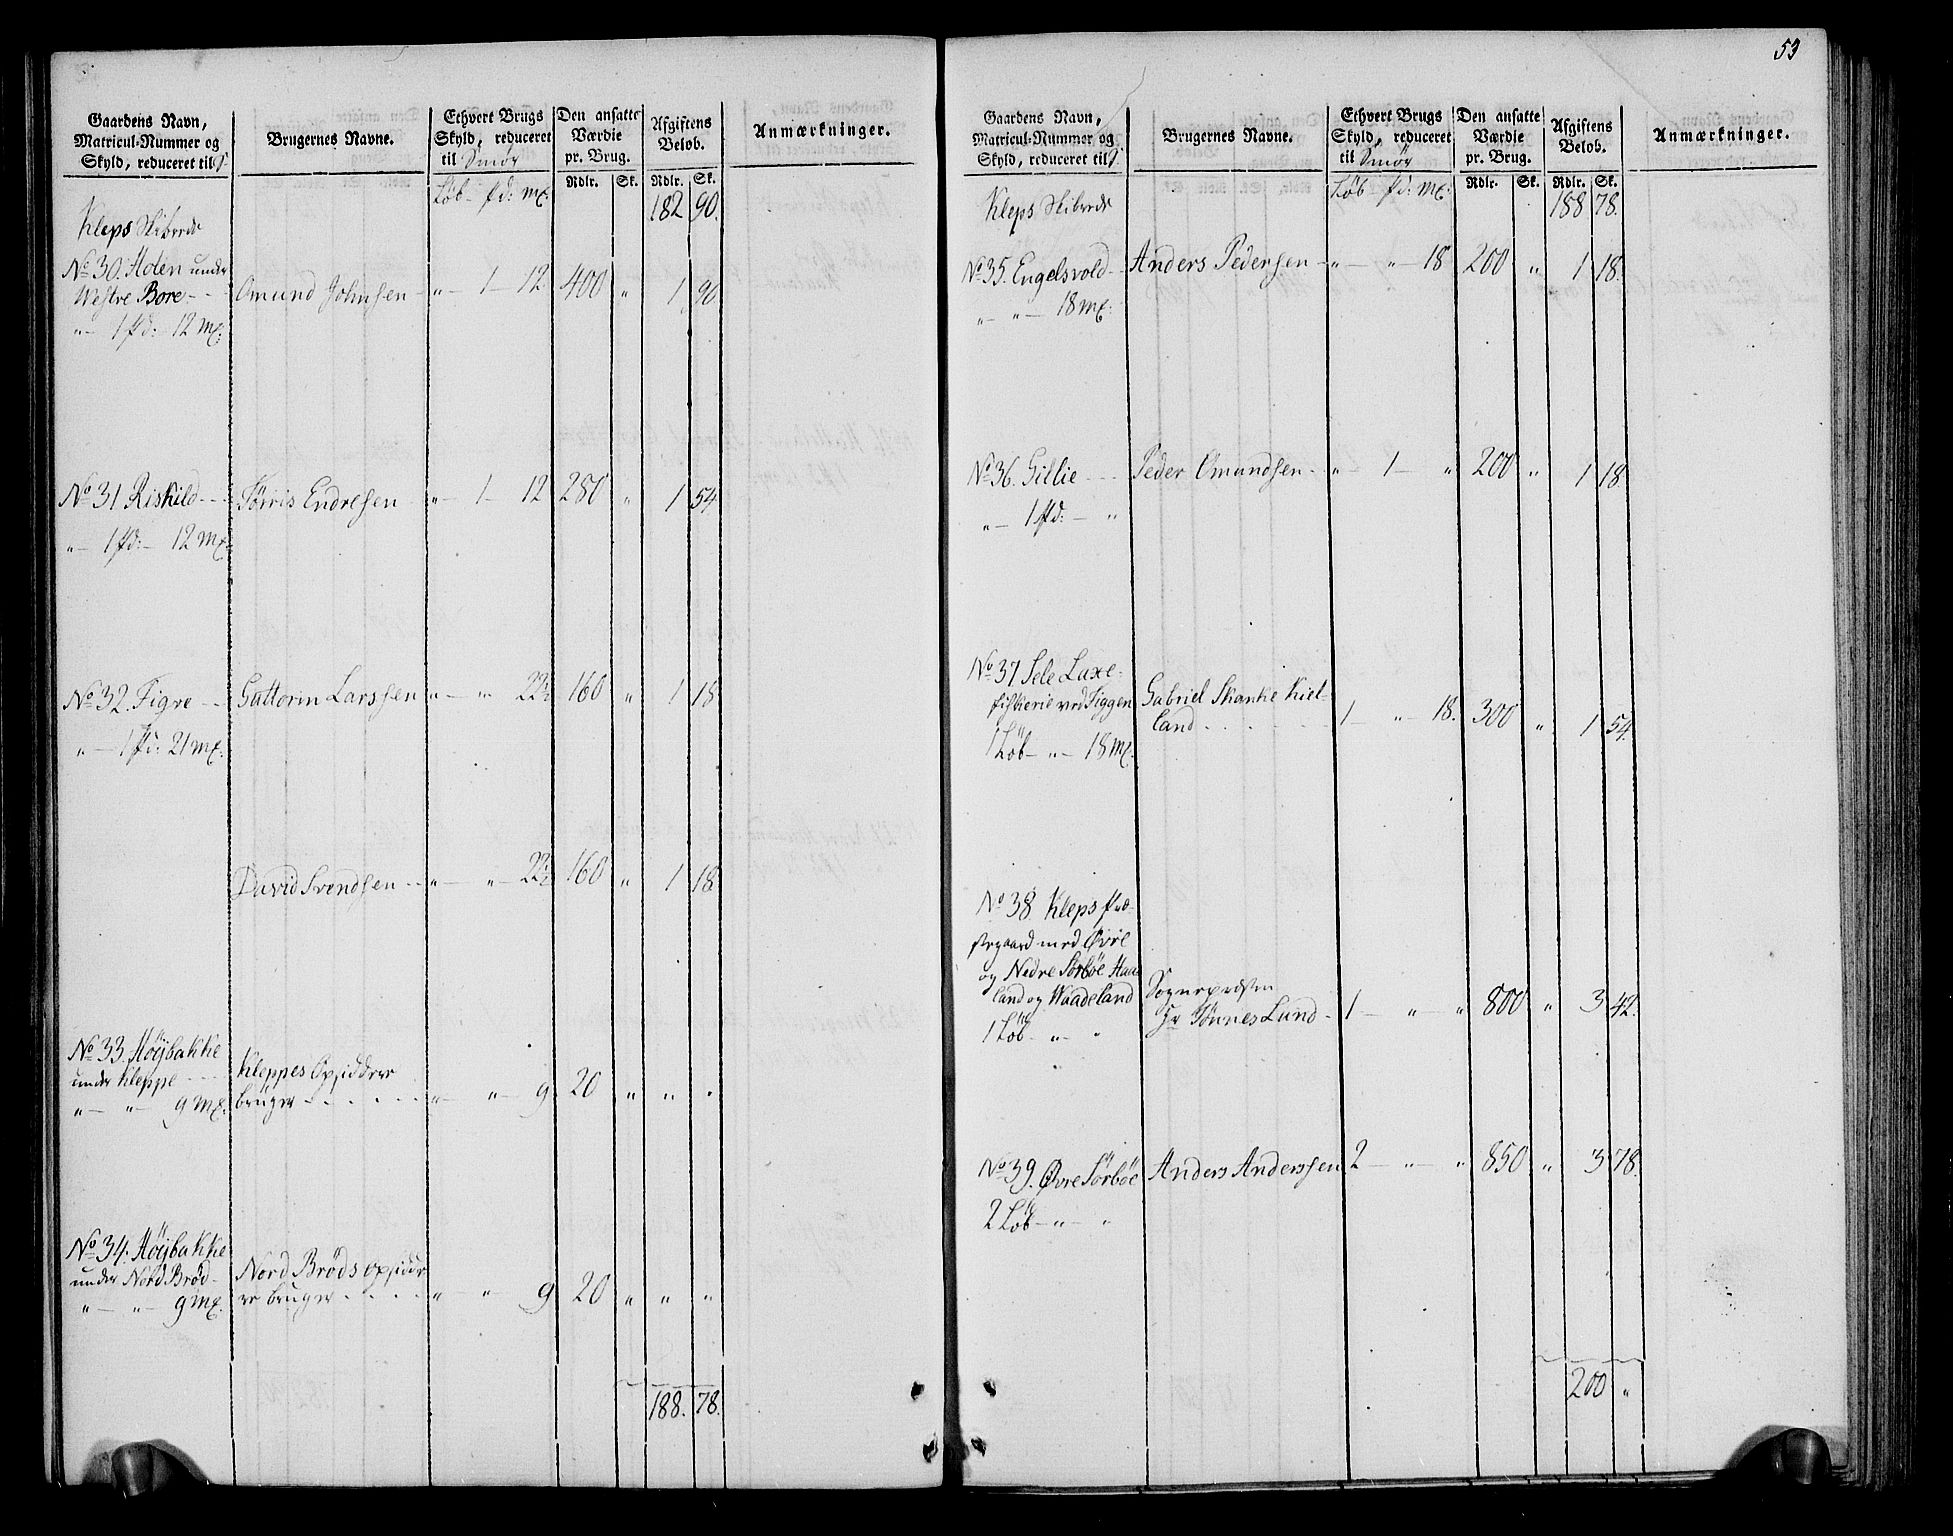 Gaardens Navn,
Matricul-Nummer og
Skyld, reduceret til
Brugernes Navne.
Ethvert Brugs
Skyld, reduceret
til Smör
Den ansatte
Værdie
pr. Brug.
Afgiftens
Beløb.
Anmærkninger.
Rdlr. Sk. Rdlr. Sk.
Löb pd: mk:
Kleps Skibrede 182 90.
No 30. Aden under
Westre Bore - Omund Johnsen - „ - 1 - 12. 400 „ 1 90
„ - 1 pd: 12 mk:
No 31 Riskild - Tørris Endresen „ - 1 - 12 280 „ 1 54
„ - 1 pd: - 12 mk:
No 32. Figve - Guttorm Larssen „ - „ 22½ 160 „ 1 18
„ - 1 pd: 21 mk:
David Svendsen - „ - „ - 22½ 160 „ 1 18
No 33. Höÿbakke
under Kleppe - Kleppes Opsiddere
„ - „ - 9 mk: bruger - „ - „ - 9 20 „ „ „
No 34. Höÿbakke
under Nord Bröd - Nord Bröds opsidde
„ - „ - 9 mk. re bruger - „ „ - 9 20 „ „ „
188. 78.
53
Gaardens Navn,
Matricul-Nummer og
Skyld, reduceret til
Brugernes Navne.
Ethvert Brugs
Skyld, reduceret
til Smör
Den ansatte
Værdie
pr. Brug.
Afgiftens
Beløb.
Anmærkninger.
Rdlr. Sk. Rdlr. Sk.
Löb pd: mk:
Kleps Skibrede 188 78.
No 35. Engelsvold - Anders Pedersen - „ - „ - 18 200 „ 1 18.
„ - „ - 18 mk:
No 36. Gillie - Peder Omundsen - „ - 1 - „ 200 „ 1 18.
„ - 1 pd: - „
No 37 Sele Laxe-
fiskerie ved Figgen Gabriel Skanke Kiel-
land - 1 - „ - 18. 300 „ 1 54.
1 Löb - „ - 18 mk.
No 38 Kleps Præ-
stegaard med Øvre
og Nedre Sörböe Haa
land og Waadeland Sognepræsten
1 Löb - „ - „ Hr Tönnes Lund - 1 - „ - „ 800 „ 3 42.
No 39. Øvre Sörböe Anders Anderssen 2 - „ - „ 850 „ 3 78.
2 Löb - „ - „
200 „